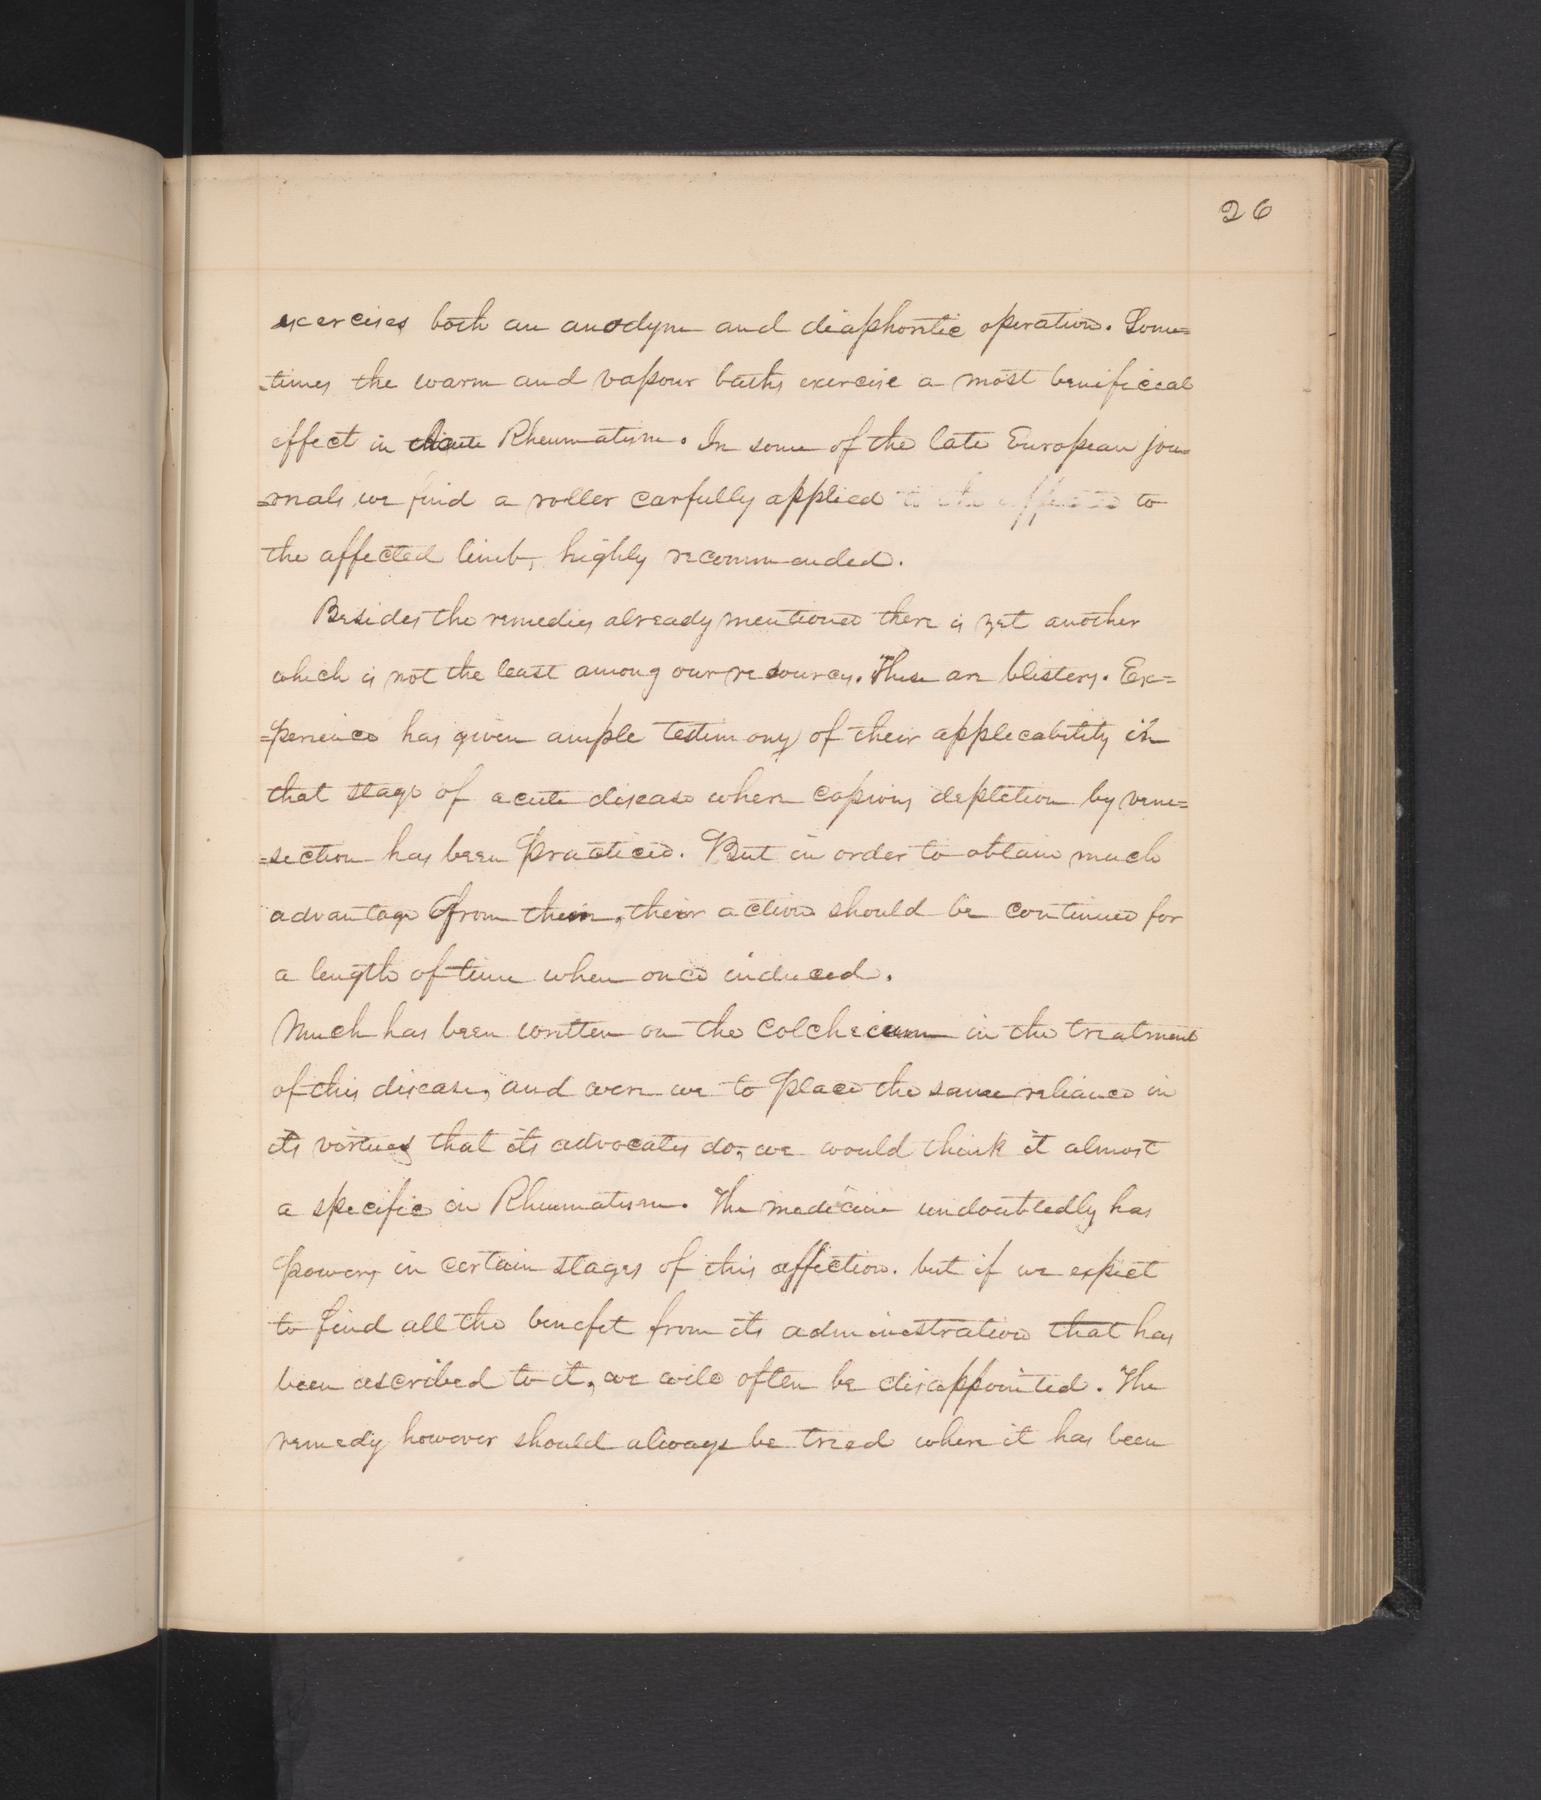 26
exercises both an anodyne and diaphoritic operation. Some=
=times the warm and vapour baths exercise a most benificial
effect in Rheumatism. In some of the late European jour=
=rnals we find a roller carfully applied to the affected to
the affected limb, highly recommended.
Besides the remedies already mentioned there is yet another
which is not the least among our resources. These are blisters. Ex=
=perience has given ample testimony of their applicability in
that stage of acute disease where copious depletion by vene=
=section has been practiced. But in order to obtain much
advantage from them, their action should be continued for
a length of time when once induced.
Much has been written on the Colchicum in the treatment
of this disease, and were we to place the same reliance in
its virtues that its advocates do, we would think it almost
a specific in Rheumatism. The medicine undoubtedly has
powers in certain stages of this affection. but if we expect
to find all the benefit from its administration that has
been ascribed to it, we will often be disappointed. The
remedy however should always be tried where it has been